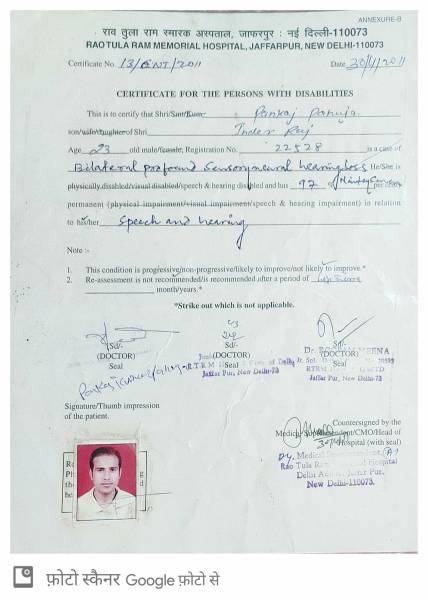 ANNEXURE-B
राव तुला राम स्मारक अस्पताल, जाफरपुर : नई दिल्ली-110073
RAO TULA RAM MEMORIAL HOSPITAL, JAFFARPUR, NEW DELHI-110073
Certificate No. 13/ENT/2011
Date 30/1/2011
CERTIFICATE FOR THE PERSONS WITH DISABILITIES
This is to certify that Shri/Smt/Kum Pankaj Pahuja
son/wife/daughter of Shri Inder Raj
Age 23 old male/female, Registration No. 22528 is a case of
Bilateral profound Sensorineural hearing loss He/She is
physically disabled/visual disabled/speech & hearing disabled and has 97 %
permanent (physical impairment/visual impairment/speech & hearing impairment) in relation
to his/her speech and hearing
Note :-
1. This condition is progressive/non-progressive/likely to improve/not likely to improve.*
2. Re-assessment is not recommended/is recommended after a period of
month/years.*
*Strike out which is not applicable.
Sd/- Sd/- Sd/-
(DOCTOR) (DOCTOR) (DOCTOR)
Seal Seal Seal
Jaffar Pur, New Delhi-73
Jaffar Pur, New Delhi-73
Signature/Thumb impression
of the patient.
Countersigned by the
Medical Superintendent/CMO/Head of
Hospital (with seal)
Dy. Medical
Rao Tula Ram Hospital
Jaffar Pur,
New Delhi-110073.
फ़ोटो स्कैनर Google फ़ोटो से